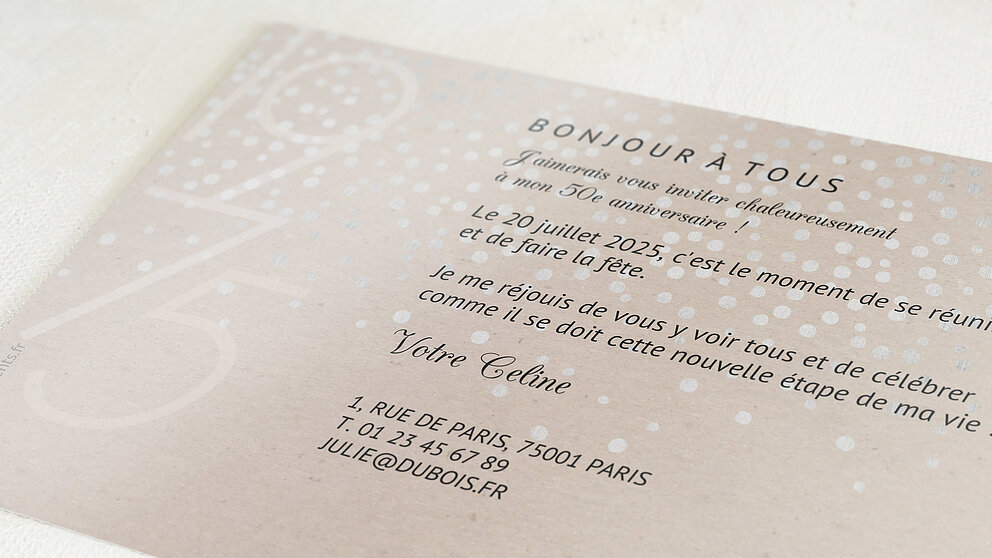 19
75
BONJOUR À TOUS
J'aimerais vous inviter chaleureusement
à mon 50e anniversaire !
Le 20 juillet 2025, c'est le moment de se
et de faire la fête.
Je me réjouis de vous y voir tous et de célébrer
comme il se doit cette nouvelle étape de ma vie
Votre Celine
1, RUE DE PARIS, 75001 PARIS
T. 01 23 45 67 89
JULIE@DUBOIS.FR